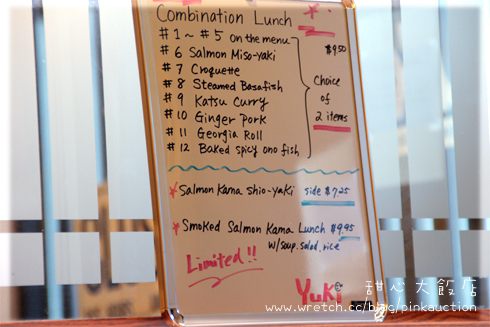 Combination Lunch
#1~#5 on the menu $9.50
#6 Salmon Miso-yaki
#7 Croquette
#8 Steamed Basafish
#9 Katsu Curry
#10 Ginger Pork
#11 Georgia Roll
#12 Baked spicy ono fish
Choice
of
2 items
Salmon Kama Shio-yaki side $7.25
Smoked Salmon Kama Lunch $9.95
w/soup.salad.rice
Limited!!
Yuki
甜心大飯店
www.wretch.cc/blog/pinkauction